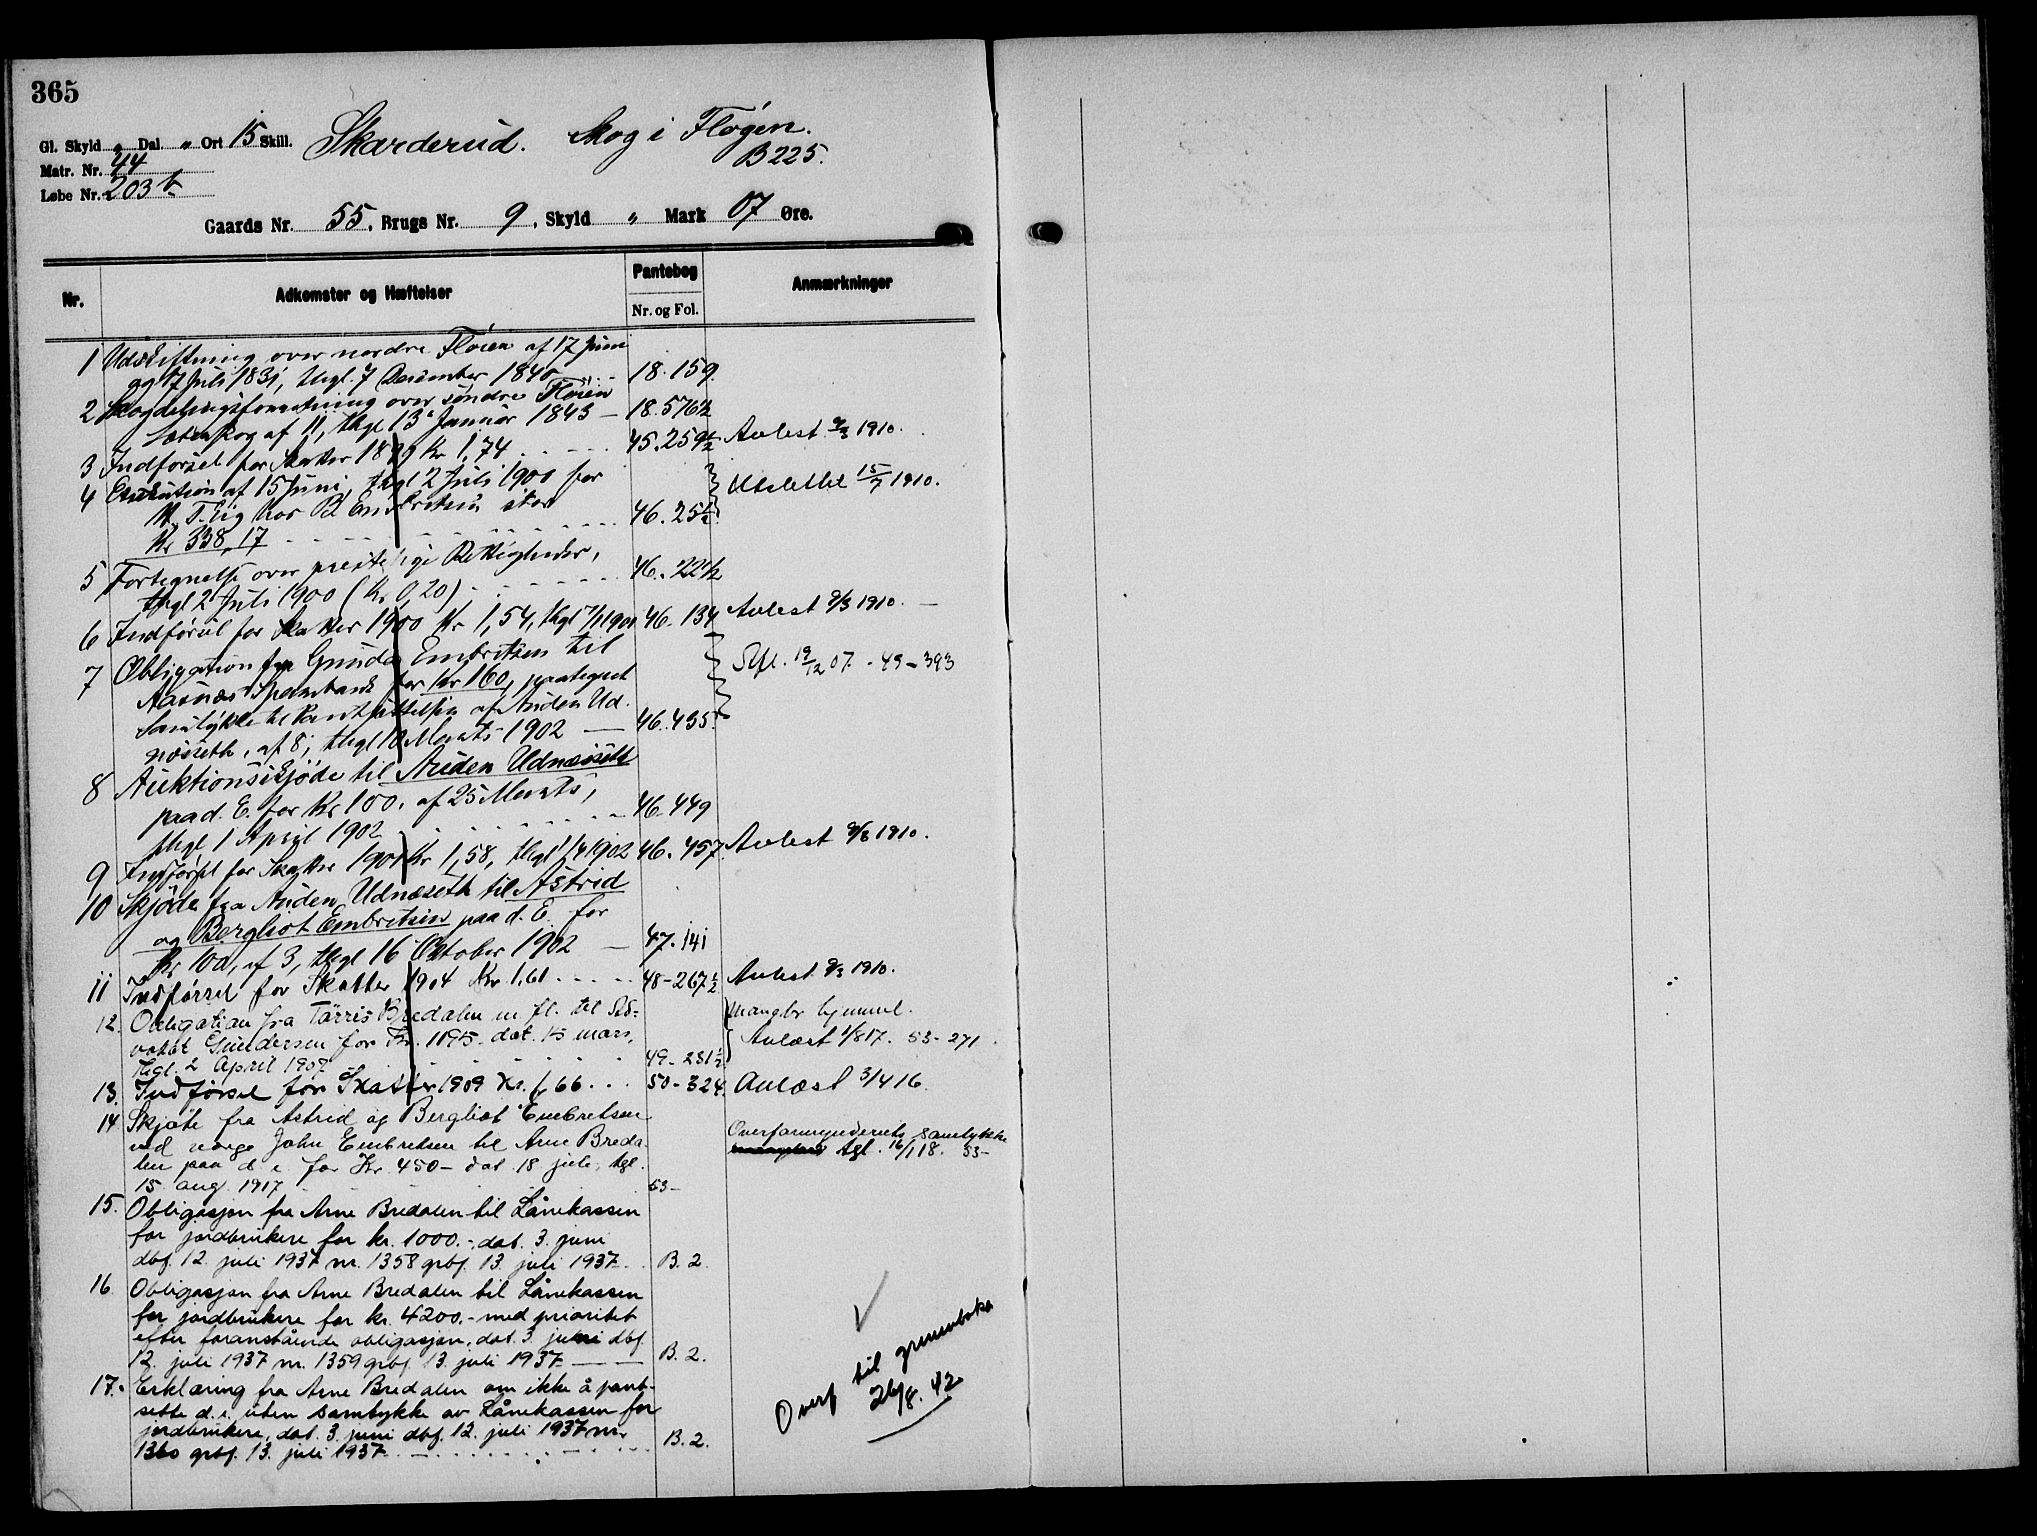 365
Gl. Skyld „ Dal. „ Ort 15 Skill. Skarderud. Skog i Fløgen.
Matr. Nr. 44 B 225.
Løbe Nr. 203 b
Gaards Nr. 55, Brugs Nr. 9, Skyld „ Mark 07 Øre.
Nr. Adkomster og Hæftelser Pantebog Nr. og Fol. Anmærkninger
1 Udskiftning over nordre Fløien af 17 Juni
og 7 Juli 1831, thgl. 7 December 1840 18. 159.
2 Skogdelingsforretning over søndre Fløien
af 11, thgl 13 Januar 1843 — 18. 576½
3 Indførsel for Skatter 1899 Kr 1,74 45. 259½ Avlest 9/3 1910.
4 Execution af 15 Juni, thgl 2 Juli 1900 for
hos B. Embretsen stor
Kr 338,17 46. 25½ Udslettet 15/7 1910.
5 Fortegnelse over presteligi Rettigheder,
thgl 2 Juli 1900 (Kr. 0,20) 46. 22½
6 Indførsel for Skatter 1900 Kr 1,54, thgl 17/1 1901 46. 134 Avlest 9/3 1910. —
7 Obligation fra Gunda Embretsen til
Aasnæs Sparebank for Kr 160, paategnet
Samtykke til Pantsættelsen af Auden Ud-
næseth, af 8, thgl 10 Marts 1902 — 46. 435. 19/12 07. - 49 - 393
8 Auktionsskjøde til Auden Udnæseth
paa d. E. for Kr 100, af 25 Marts,
thgl 1 April 1902 46. 449
9 Indførsel for Skatter 1901 Kr 1,58, thgl 1/4 1902 46. 457. Avlest 9/3 1910.
10 Skjøde fra Auden Udnæseth til Astrid
og Bergliot Embretsen paa d. E. for
Kr 100, af 3, thgl 16 October 1902 — 47. 141
11 Indførsel for Skatter 1904 Kr 1,61 . . . . 48 - 267½ Avlest 9/3 1910.
12. Obligation fra Tarris Bredalen m fl. til Ad-
vokat Gundersen for Kr. 1195. dat. 15 mars, Mangler hjemmel.
thgl. 2 April 1907 49 - 231½ Avlæst 1/8 17. 53 - 271.
13. Indførsel for Skatter 1909 Kr. 1,66 . . . 50 - 324. Avlæst 3/4 16.
14 Skjøte fra Astrid og Bergliot Embretsen
ved verge John Embretsen til Arne Breda- Overformynderiets samtykke
len paa d. e. for Kr. 450 — dat. 18 juli, tgl. tgl. 16/1 18. 53 -
15. aug. 1917 53 -
15. Obligasjon fra Arne Bredalen til Lånekassen
for jordbrukere for kr. 1000.-, dat. 3. juni
dbf. 12. juli 1937 nr. 1358 grbf. 13. juli 1937. B. 2.
16. Obligasjon fra Arne Bredalen til Lånekassen
for jordbrukere for kr. 4200.- med prioritet
efter foranstående obligasjon, dat. 3. juni dbf.
12. juli 1937 nr. 1359 grbf. 13. juli 1937. — — B. 2.
17. Erklæring fra Arne Bredalen om ikke å pant-
sette d. e. uten samtykke av Lånekassen for
jordbrukere, dat. 3. juni dbf. 12. juli 1937 nr.
1360 grbf. 13. juli 1937. B. 2.
Overf til grunnboka
26/8. 42